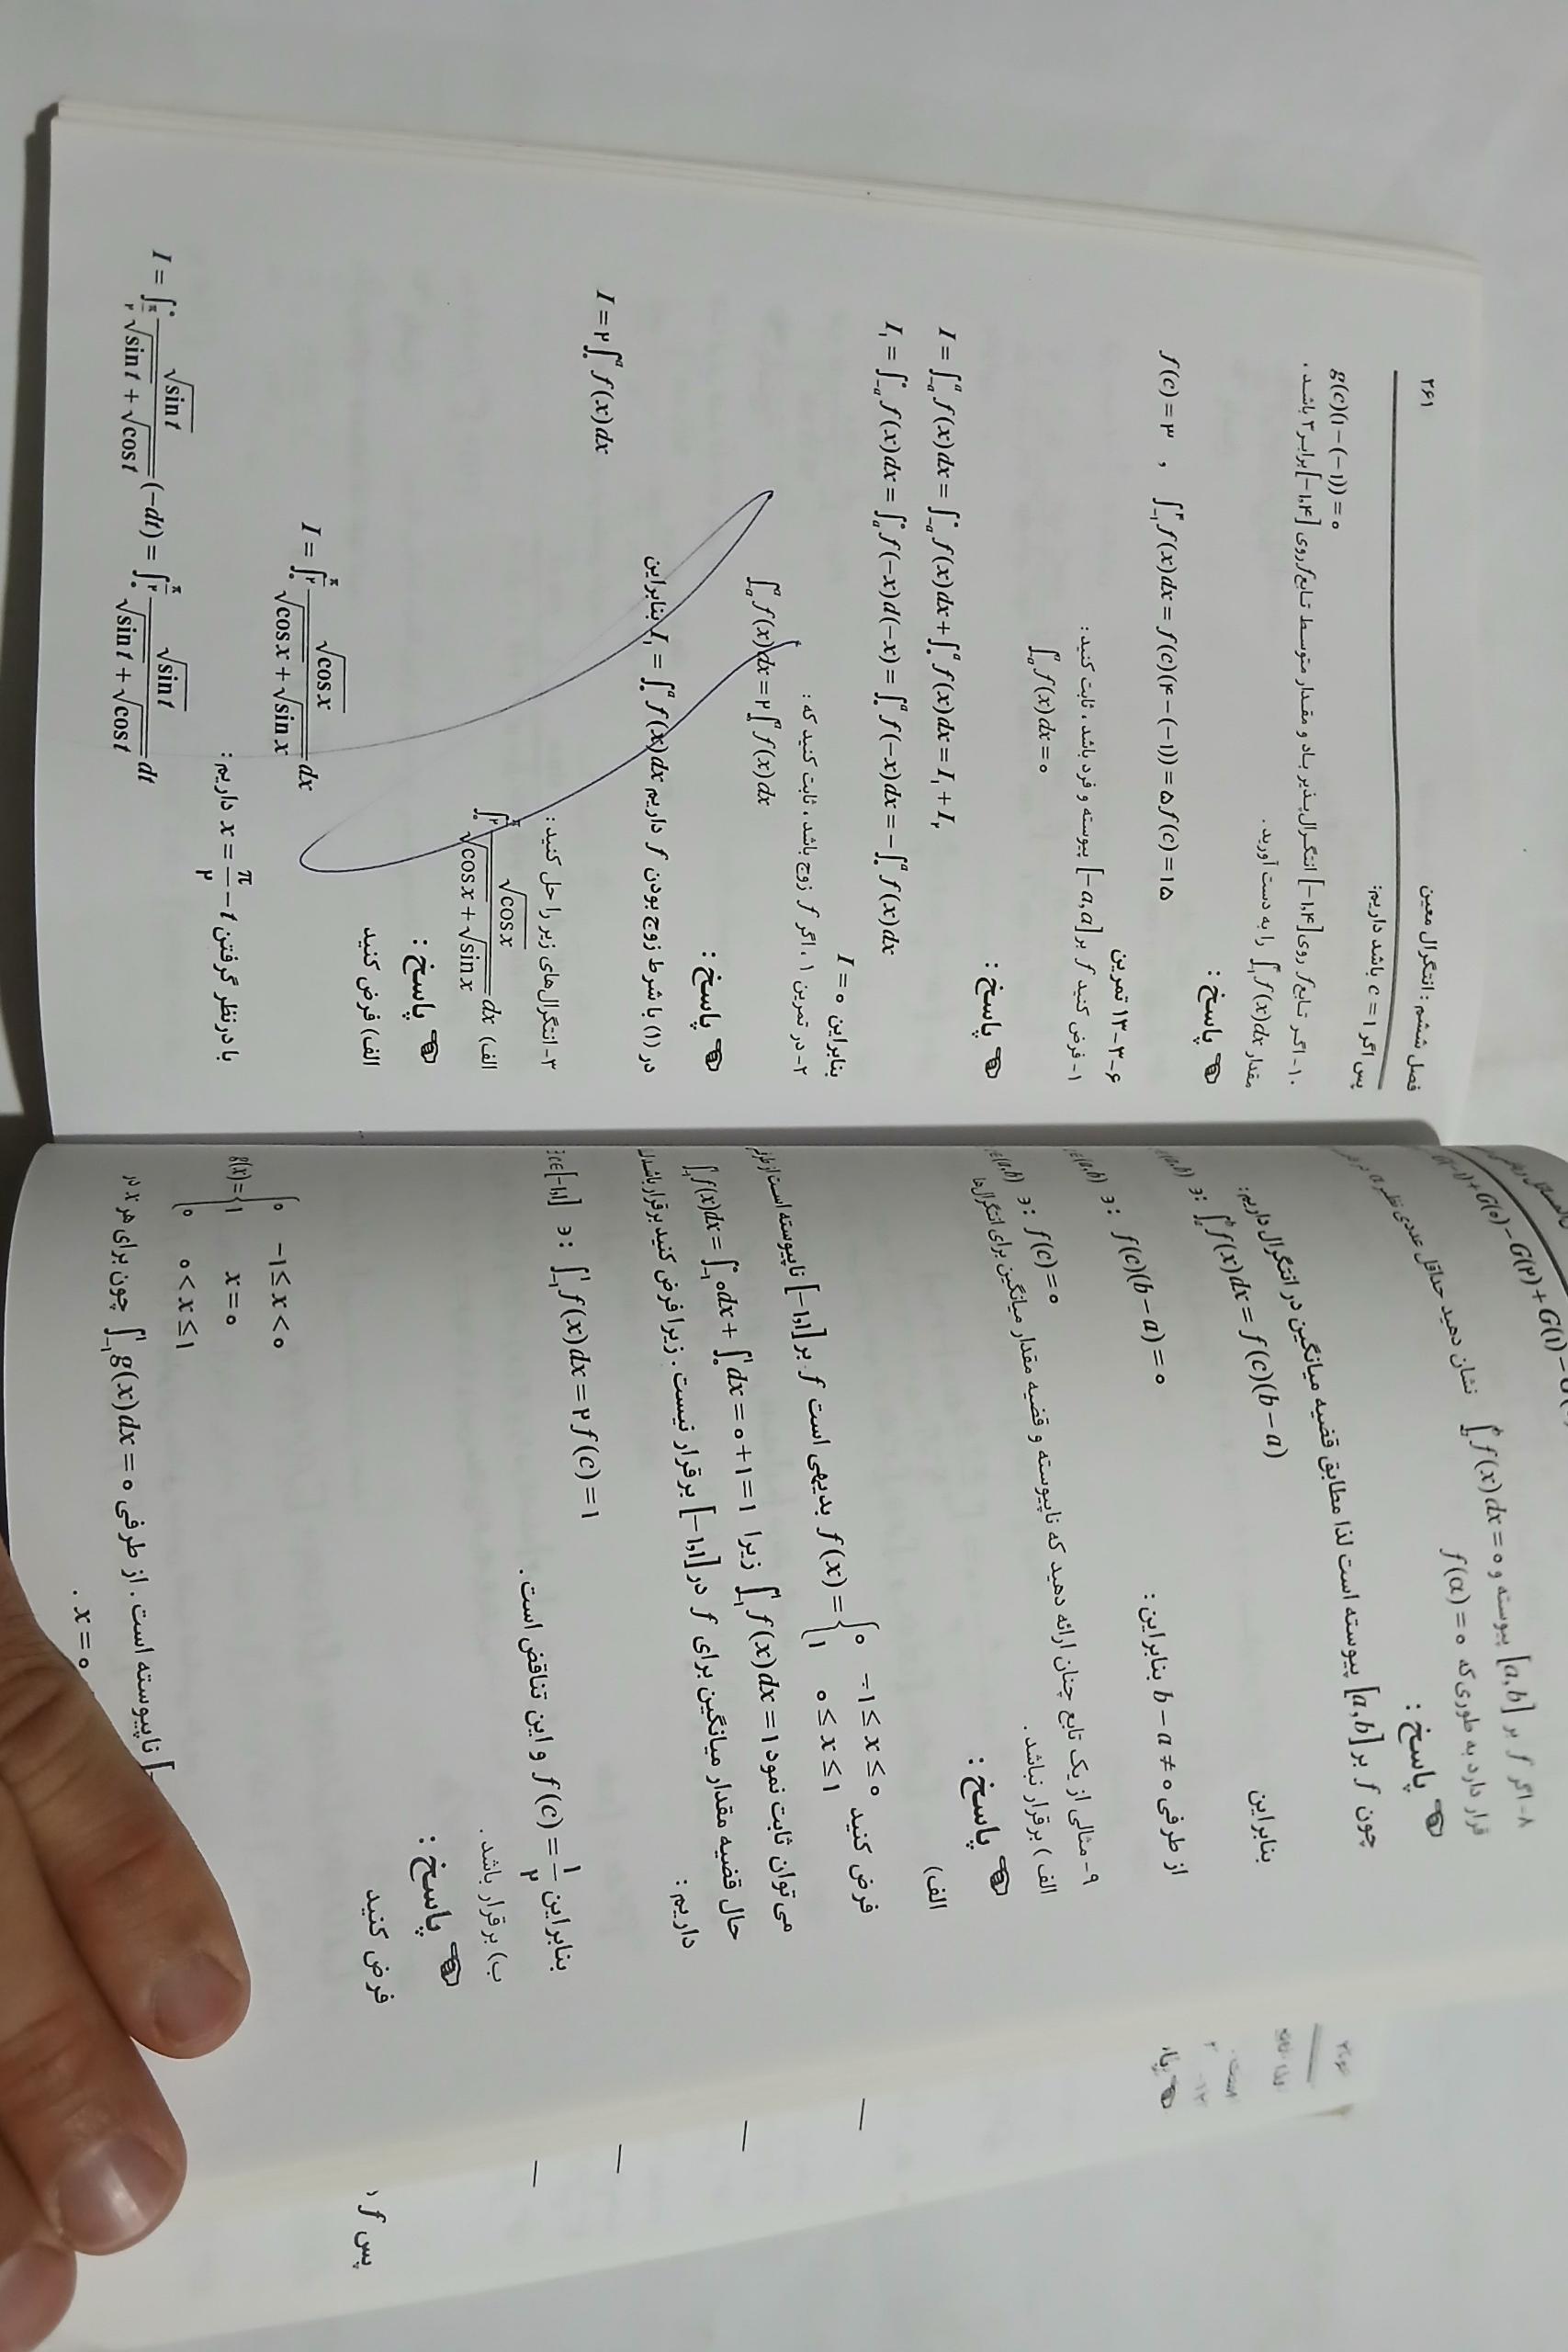 ۲۶۱ فصل ششم : انتگرال معین
پس اگر c = 1 باشد داریم:
g(c)(۱-(-۱)) = ۰
۱۰- اگر تابع f روی [-۱,۴] انتگرال‌پذیر باد و مقدار متوسط تابع f روی [-۱,۴] برابر ۳ باشد .
مقدار ∫₋₁⁴ f(x)dx را به دست آورید.
☜ پاسخ :
f(c) = ۳ , ∫₋₁⁴ f(x)dx = f(c)(۴-(-۱)) = ۵f(c) = ۱۵
۶-۳-۱۳ تمرین
۱- فرض کنید f بر [-a,a] پیوسته و فرد باشد ، ثابت کنید :
∫₋ₐᵃ f(x)dx = ۰
☜ پاسخ :
I = ∫₋ₐᵃ f(x)dx = ∫₋ₐ⁰ f(x)dx + ∫₀ᵃ f(x)dx = I₁ + I₂
I₁ = ∫₋ₐ⁰ f(x)dx = ∫ₐ⁰ f(-x)d(-x) = ∫₀ᵃ f(-x)dx = -∫₀ᵃ f(x)dx
بنابراین I = ۰
۲- در تمرین ۱ ، اگر f زوج باشد ، ثابت کنید که :
∫₋ₐᵃ f(x)dx = ۲∫₀ᵃ f(x)dx
☜ پاسخ :
در (۱) با شرط زوج بودن f داریم I₁ = ∫₀ᵃ f(x)dx بنابراین
I = ۲∫₀ᵃ f(x)dx
۳- انتگرال‌های زیر را حل کنید :
الف) ∫₀^(π/۲) √cos x / (√cos x + √sin x) dx
☜ پاسخ :
الف) فرض کنید
I = ∫₀^(π/۲) √cos x / (√cos x + √sin x) dx
با در نظر گرفتن x = π/۲ - t داریم :
I = ∫_(π/۲)^۰ √sin t / (√sin t + √cos t) (-dt) = ∫₀^(π/۲) √sin t / (√sin t + √cos t) dt
G(۰) - G(۲) + G(۱) -
۸- اگر f بر [a,b] پیوسته و ∫ₐᵇ f(x)dx = ۰ نشان دهید حداقل عددی نظیر a در
قرار دارد به طوری که f(a) = ۰
☜ پاسخ :
چون f بر [a,b] پیوسته است لذا مطابق قضیه میانگین در انتگرال داریم:
∋: ∫ₐᵇ f(x)dx = f(c)(b-a)
بنابراین
∋: f(c)(b-a) = ۰
از طرفی b-a ≠ ۰ بنابراین :
∋: f(c) = ۰
۹- مثالی از یک تابع چنان ارائه دهید که ناپیوسته و قضیه مقدار میانگین برای انتگرال‌ها
الف) برقرار نباشد .
☜ پاسخ :
الف)
فرض کنید f(x) = { ۰ -۱ ≤ x ≤ ۰ ; ۱ ۰ ≤ x ≤ ۱ بدیهی است f بر [-۱,۱] ناپیوسته است از طرفی
می‌توان ثابت نمود ∫₋₁¹ f(x)dx = ۱ زیرا ∫₋₁¹ f(x)dx = ∫₋₁⁰ ۰dx + ∫₀¹ dx = ۰+۱ = ۱
حال قضیه مقدار میانگین برای f در [-۱,۱] برقرار نیست . زیرا فرض کنید برقرار باشد
داریم :
c∈[-۱,۱] ∋: ∫₋₁¹ f(x)dx = ۲f(c) = ۱
بنابراین f(c) = ۱/۲ و این تناقض است .
ب) برقرار باشد .
☜ پاسخ :
فرض کنید
g(x) = { ۰ -۱ ≤ x < ۰
۱ x = ۰
۰ ۰ < x ≤ ۱
ناپیوسته است . از طرفی ∫₋₁¹ g(x)dx = ۰ چون برای هر x در
x = ۰ .
پس f